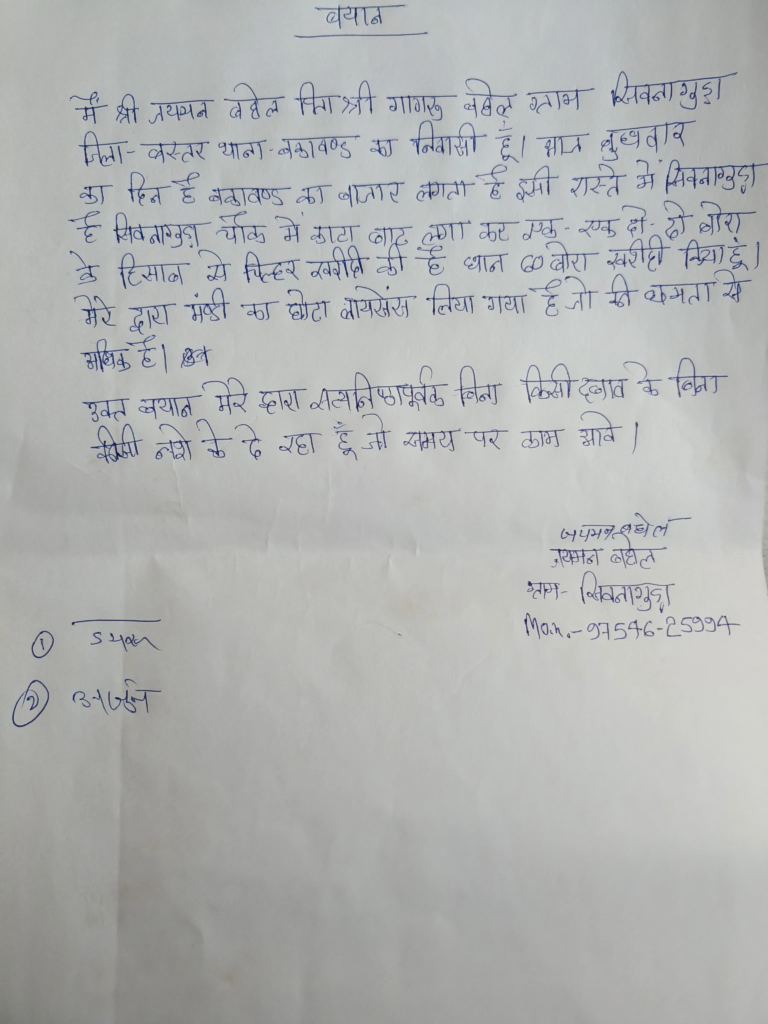 बयान
मैं श्री जयमन बघेल पिता श्री गागरु बघेल ग्राम सिवनागुड़ा
जिला- बस्तर थाना- बकावण्ड का निवासी हूँ। आज बुधवार
का दिन है बकावण्ड का बाजार लगता है इसी रास्ते में सिवनागुड़ा
है सिवनागुड़ा चौक में काटा बाट लगा कर एक- एक दो- दो बोरा
के हिसाब से चिल्हर खरीदी की है धान 60 बोरा खरीदी किया हूं।
मेरे द्वारा मंण्डी का छोटा लायसेंस लिया गया है जो की क्षमता से
अधिक है।
उक्त बयान मेरे द्वारा सत्यनिष्ठापूर्वक बिना किसी दबाव के बिना
किसी नशे के दे रहा हूँ जो समय पर काम आवे।
जयमन बघेल
जयमन बघेल
ग्राम- सिवनागुड़ा
Mo.n.- 97546-25994
①
② अर्जुन